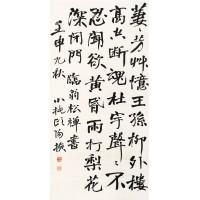 萋〻芳艸憶王孫柳外樓
高空斷魂杜宇聲〻不
忍聞欲黃昏雨打梨花
深閉門 臨翁松禪書
壬申九秋 小